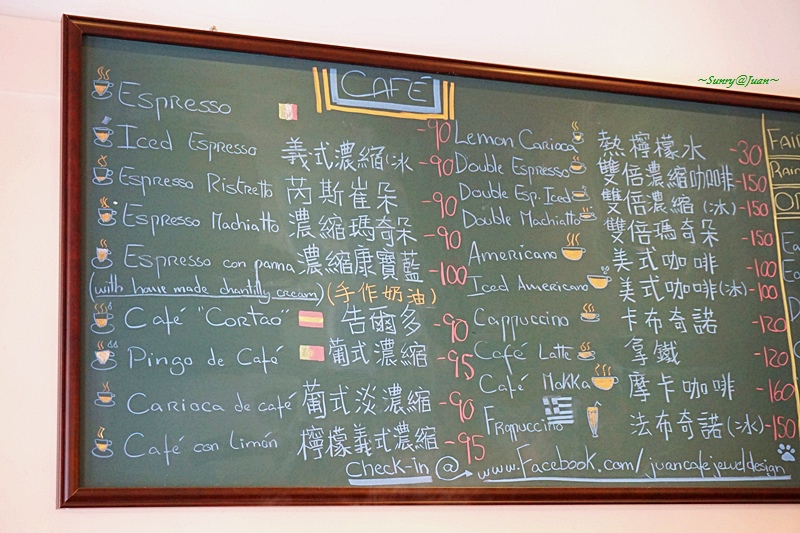 ~Sunry@Juan~
CAFÉ
Espresso -90
Iced Espresso 義式濃縮(冰 -90
Espresso Ristretto 芮斯崔朵 -90
Espresso Machiatto 濃縮瑪奇朵 -90
Espresso con panna 濃縮康寶藍 -100
(with house made chantilly cream) (手作奶油)
Café "Cortao" 告爾多 -90
Pingo de Café 葡式濃縮 -95
Carioca de café 葡式淡濃縮 -90
Café con Limón 檸檬義式濃縮 -95
Lemon Carioca 熱檸檬水 -30
Double Espresso 雙倍濃縮咖啡 -150
Double Esp. Iced 雙倍濃縮(冰) -150
Double Machiatto 雙倍瑪奇朵 -150
Americano 美式咖啡 -100
Iced Americano 美式咖啡(冰) -100
Cappuccino 卡布奇諾 -120
Café Latte 拿鐵 -120
Café Mokka 摩卡咖啡 -160
Frappuccino 法布奇諾(冰) -150
Check-in @ → www.Facebook.com/juancafejeweldesign